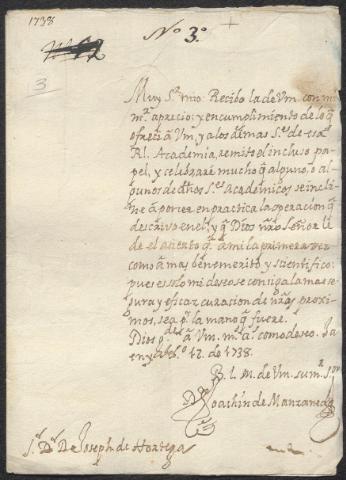 1738
Nº 3º
3
Muy Sr. mio: Recibo la de Vm. con mi
mr. aprecio; y en cumplimiento de lo q
ofreci a Vm, y a los demas Ss. de esa
Rl. Academia, remito el incluso pa-
pel, y celebrare mucho q alguno, o al-
gunos de dhos Ss. Academicos se incli-
ne a poner en practica la operacion q
descrivo en el; y q Dios nro Señor le
de el acierto q a mi la primera vez
como a mas benemerito, y scientifico:
pues es solo mi deseo se consiga la mas se-
gura y eficaz curacion de nros proxi-
mos, sea p la mano q fuere.
Dios gde a Vm. ms. as. como deseo. Ja
en y 12. de 1738.
B. L. M. de Vm. su mr. sor
Dn Joachin de Manzaneda
Sr. Dr. Dn Joseph de Hortega